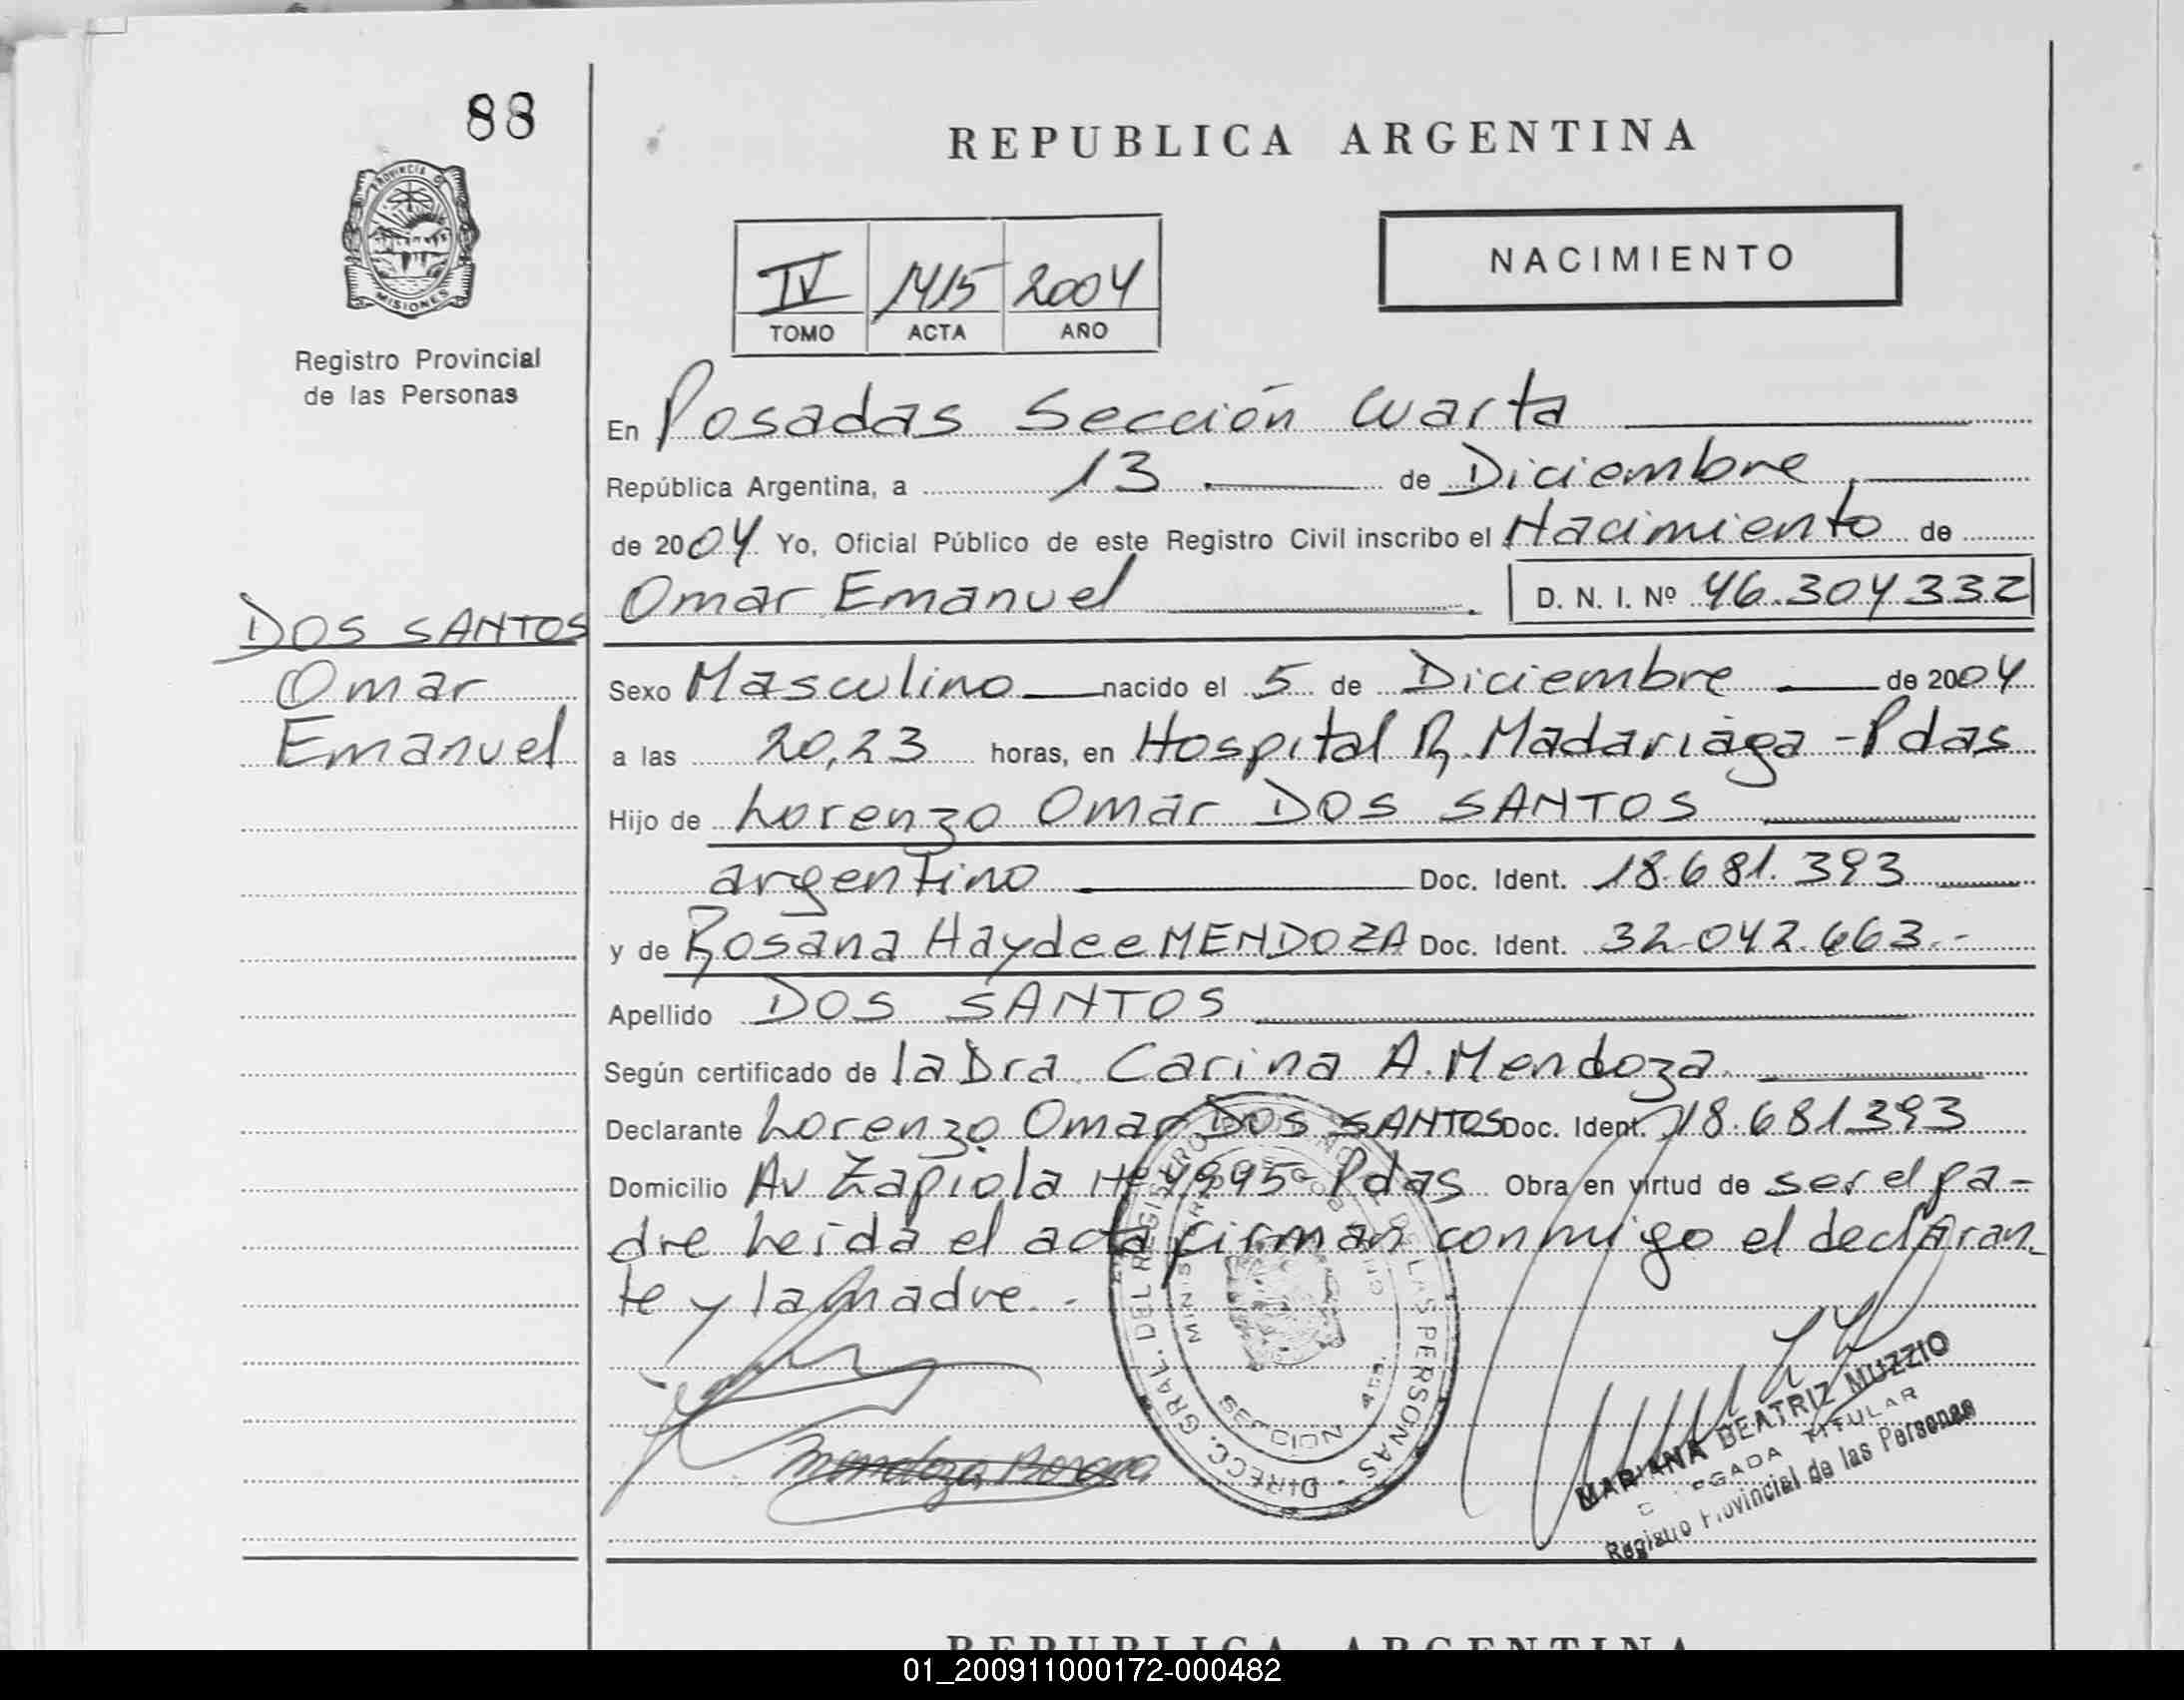 88
REPUBLICA ARGENTINA
PROVINCIA D
MISIONES
Registro Provincial
de las Personas
NACIMIENTO
IV 1415 2004
TOMO ACTA AÑO
En Posadas Sección Cuarta
República Argentina, a 13 de Diciembre
de 2004 Yo, Oficial Público de este Registro Civil inscribo el Nacimiento de
Omar Emanuel D. N. I. Nº 46.304332
DOS SANTOS
Omar
Emanuel
Sexo Masculino nacido el 5 de Diciembre de 2004
a las 20,23 horas, en Hospital R. Madariaga - Pdas
Hijo de Lorenzo Omar DOS SANTOS
argentino Doc. Ident. 18.681.393
y de Rosana Haydee MENDOZA Doc. Ident. 32.042.663.-
Apellido DOS SANTOS
Según certificado de la Dra. Carina A. Mendoza
Declarante Lorenzo Omar DOS SANTOS Doc. Ident. 18.681.393
Domicilio Av Zapiola Nº 4995- Pdas Obra en virtud de ser el pa-
dre Leida el acta firman conmigo el declaran-
te y la madre.-
Mendoza Rosana
DIRECC. GRAL. DEL REGISTRO DE LAS PERSONAS
SECCION 4ta.
MARIANA BEATRIZ MUZZIO
DELEGADA TITULAR
Registro Provincial de las Personas
REPUBLICA ARGENTINA
01_200911000172-000482